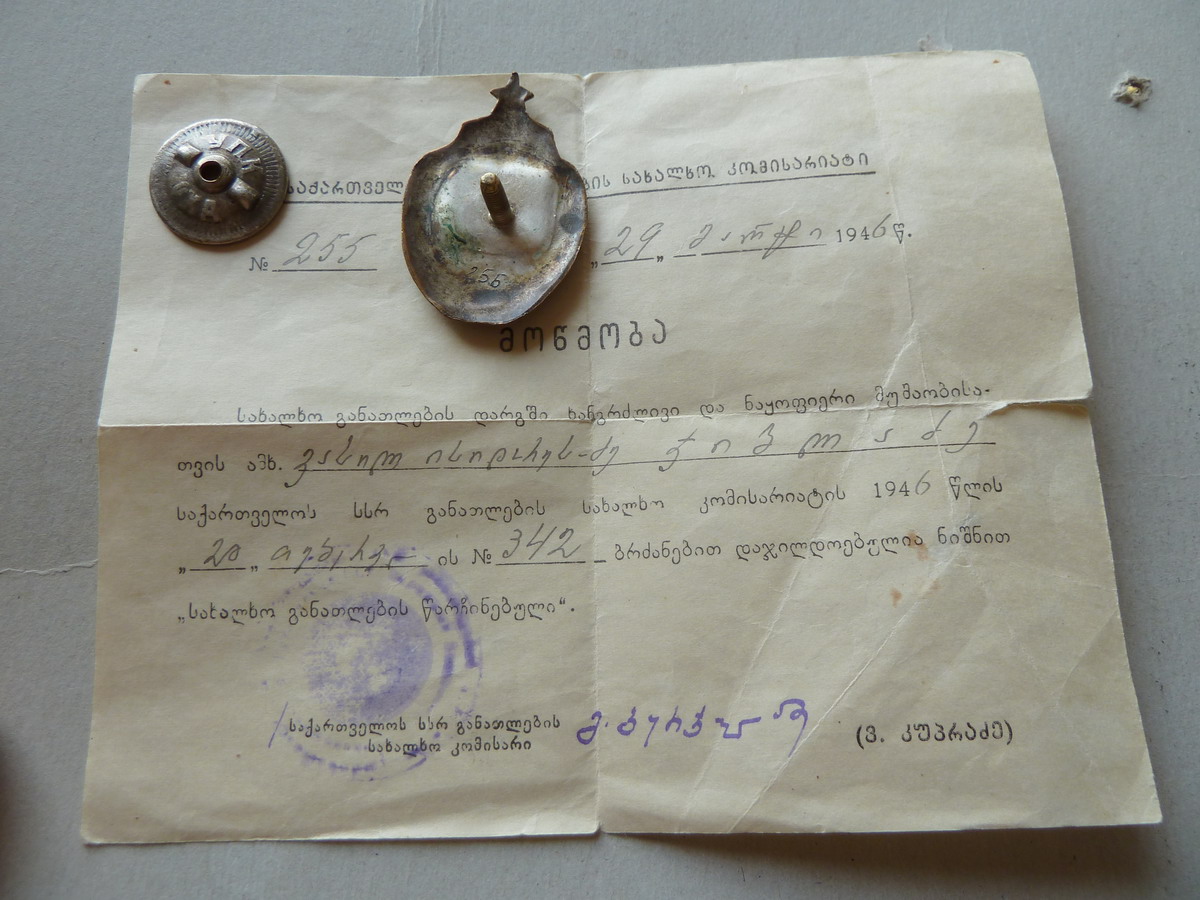 საქართველ ის სახალხო კომისარიატი
№ 255 „29„ მარტი 1946 წ.
255
მოწმობა
სახალხო განათლების დარგში ხანგრძლივი და ნაყოფიერი მუშაობისა-
თვის ამხ. ვასილ ისიდორეს-ძე
საქართველოს სსრ განათლების სახალხო კომისარიატის 1946 წლის
„20„ თებერვლ ის № 342 ბრძანებით დაჯილდოებულია ნიშნით
„სახალხო განათლების წარჩინებული“.
საქართველოს სსრ განათლების
სახალხო კომისარი
(ვ. კუპრაძე)